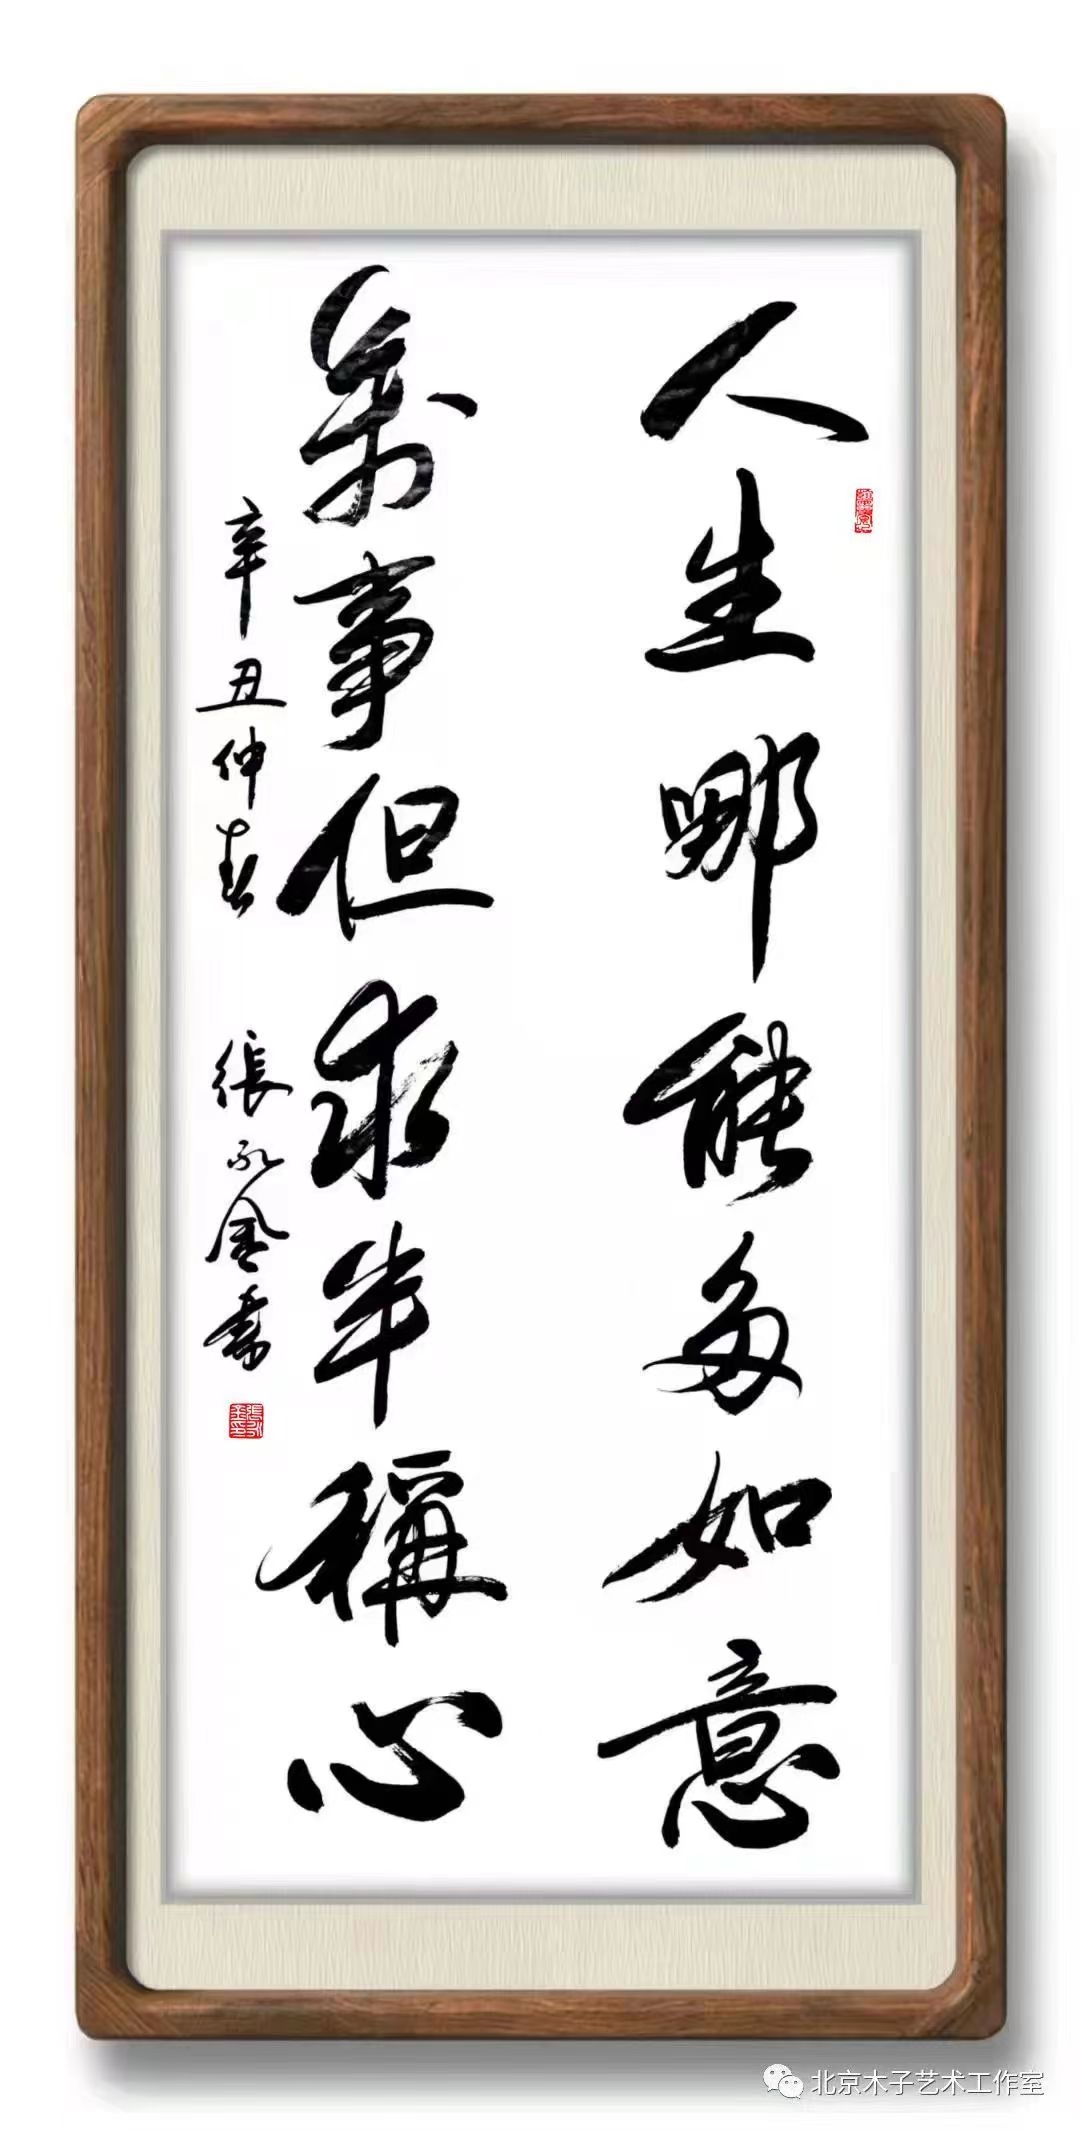 人生哪能多如意
萬事但求半稱心
辛丑仲春 張永金書
北京木子艺术工作室